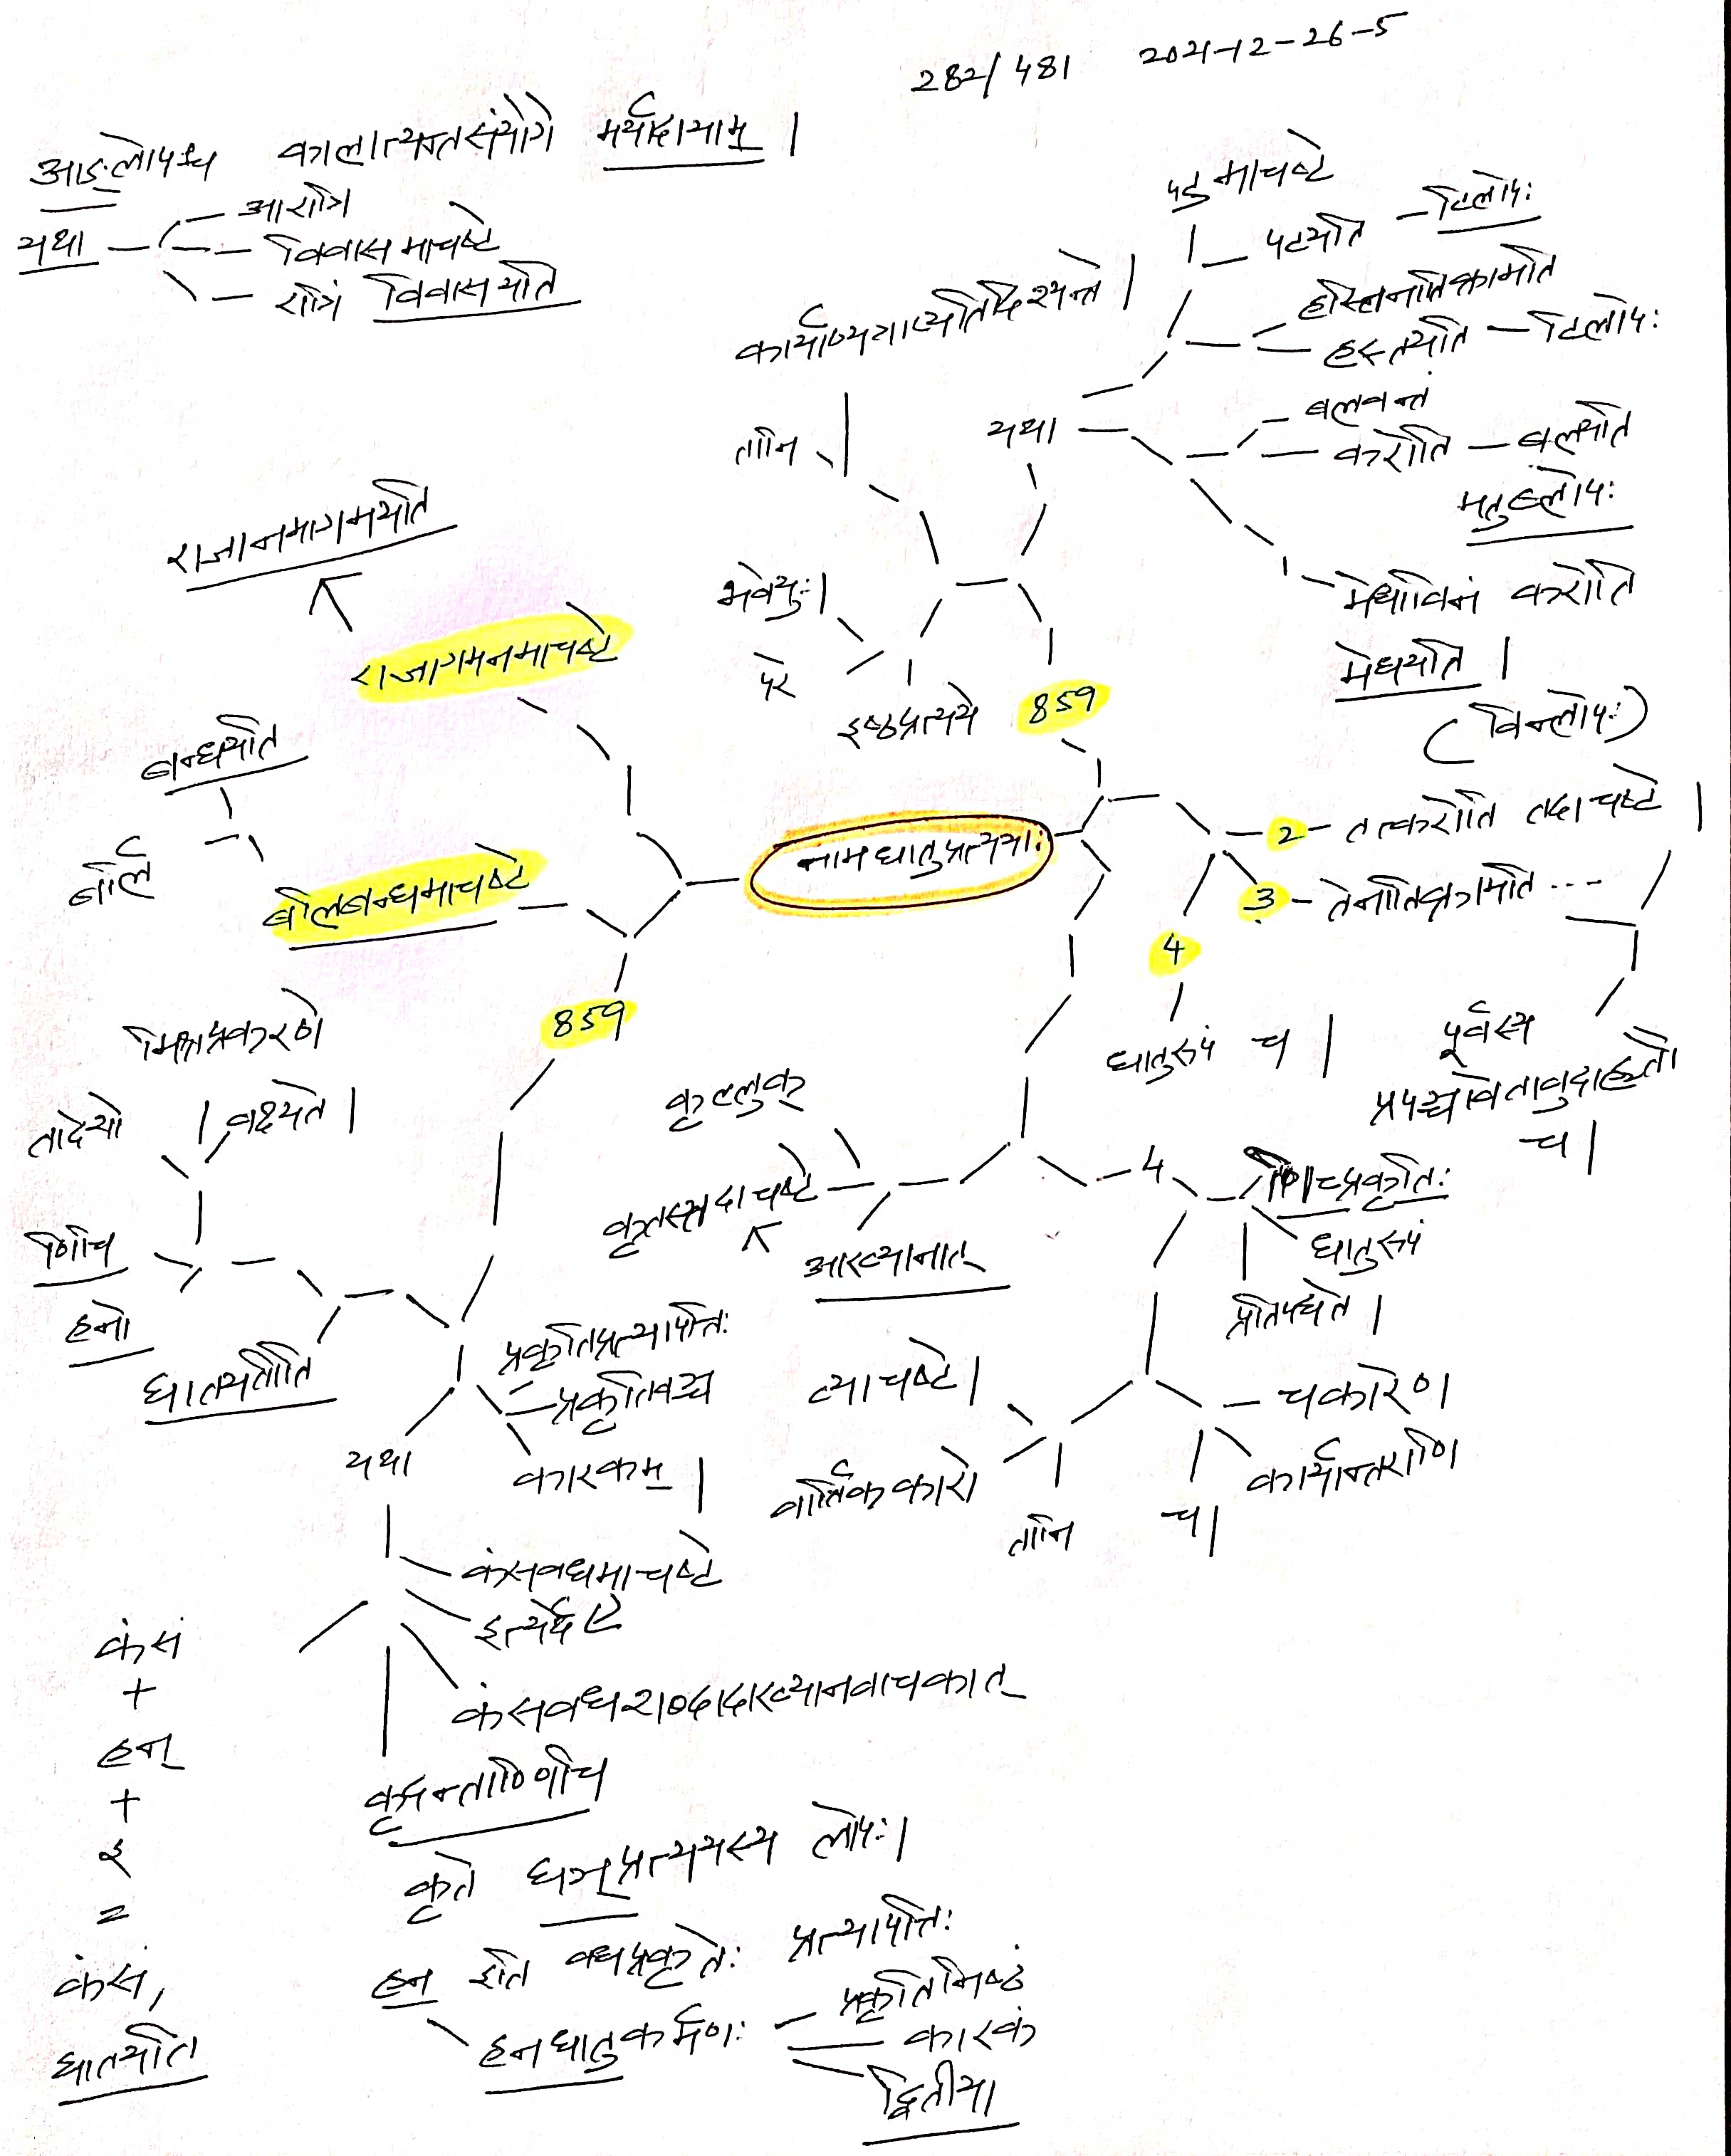 282/481 2021-12-26-5
आङ्लोपश्च कालात्यन्तसंयोगे मर्यादायाम् |
यथा
आरात्रि
विवासमाचष्टे
रात्रिं विवासयति
पटुमाचष्टे
पटयति - टिलोपः
हस्तिनातिक्रामति
हस्तयति - टिलोपः
बलवन्तं
करोति - बलयति
मतुब्लोपः
मेधाविनं करोति
मेधयति |
(विन्लोपः)
यथा
कार्याण्यणाप्यतिदिश्यन्ते |
तानि
भवेयुः |
परे
इष्ठप्रत्यये
859
राजानमागमयति
राजागमनमाचष्टे
बन्धयति
बलिं
बलिबन्धमाचष्टे
नामधातुप्रत्ययाः
2 - तत्करोति तदाचष्टे |
3 - तेनातिक्रामति ...
4
धातुरूपं च |
पूर्वस्य
प्रपञ्चावेतावुदाहृतौ
च |
859
भिन्नप्रकरणे
तादेशो
वक्ष्यते |
णिचि
हनो
घातयतीति
कृल्लुक्
कृतस्तदाचष्टे
आख्यानात्
4
णिच्प्रकृतिः
धातुरूपं
प्रतिपद्यते |
प्रकृतिप्रत्यापत्तिः
प्रकृतिवच्च
कारकम् |
यथा
त्याचष्टे |
वार्तिककारो
तानि
च |
चकारेण
कार्यान्तराणि
कंसवधमाचष्टे
इत्यर्थे
कंसवधशब्दादाख्यानवाचकात्
कृदन्ताण्णिचि
कृते घञ्प्रत्ययस्य लोपः |
हन इति वधप्रकृतेः प्रत्यापत्तिः
हनधातुकर्मणः
प्रकृतिमिष्ठं
कारकं
द्वितीया
कंसं
+
हन्
+
इ
=
कंसं,
घातयति